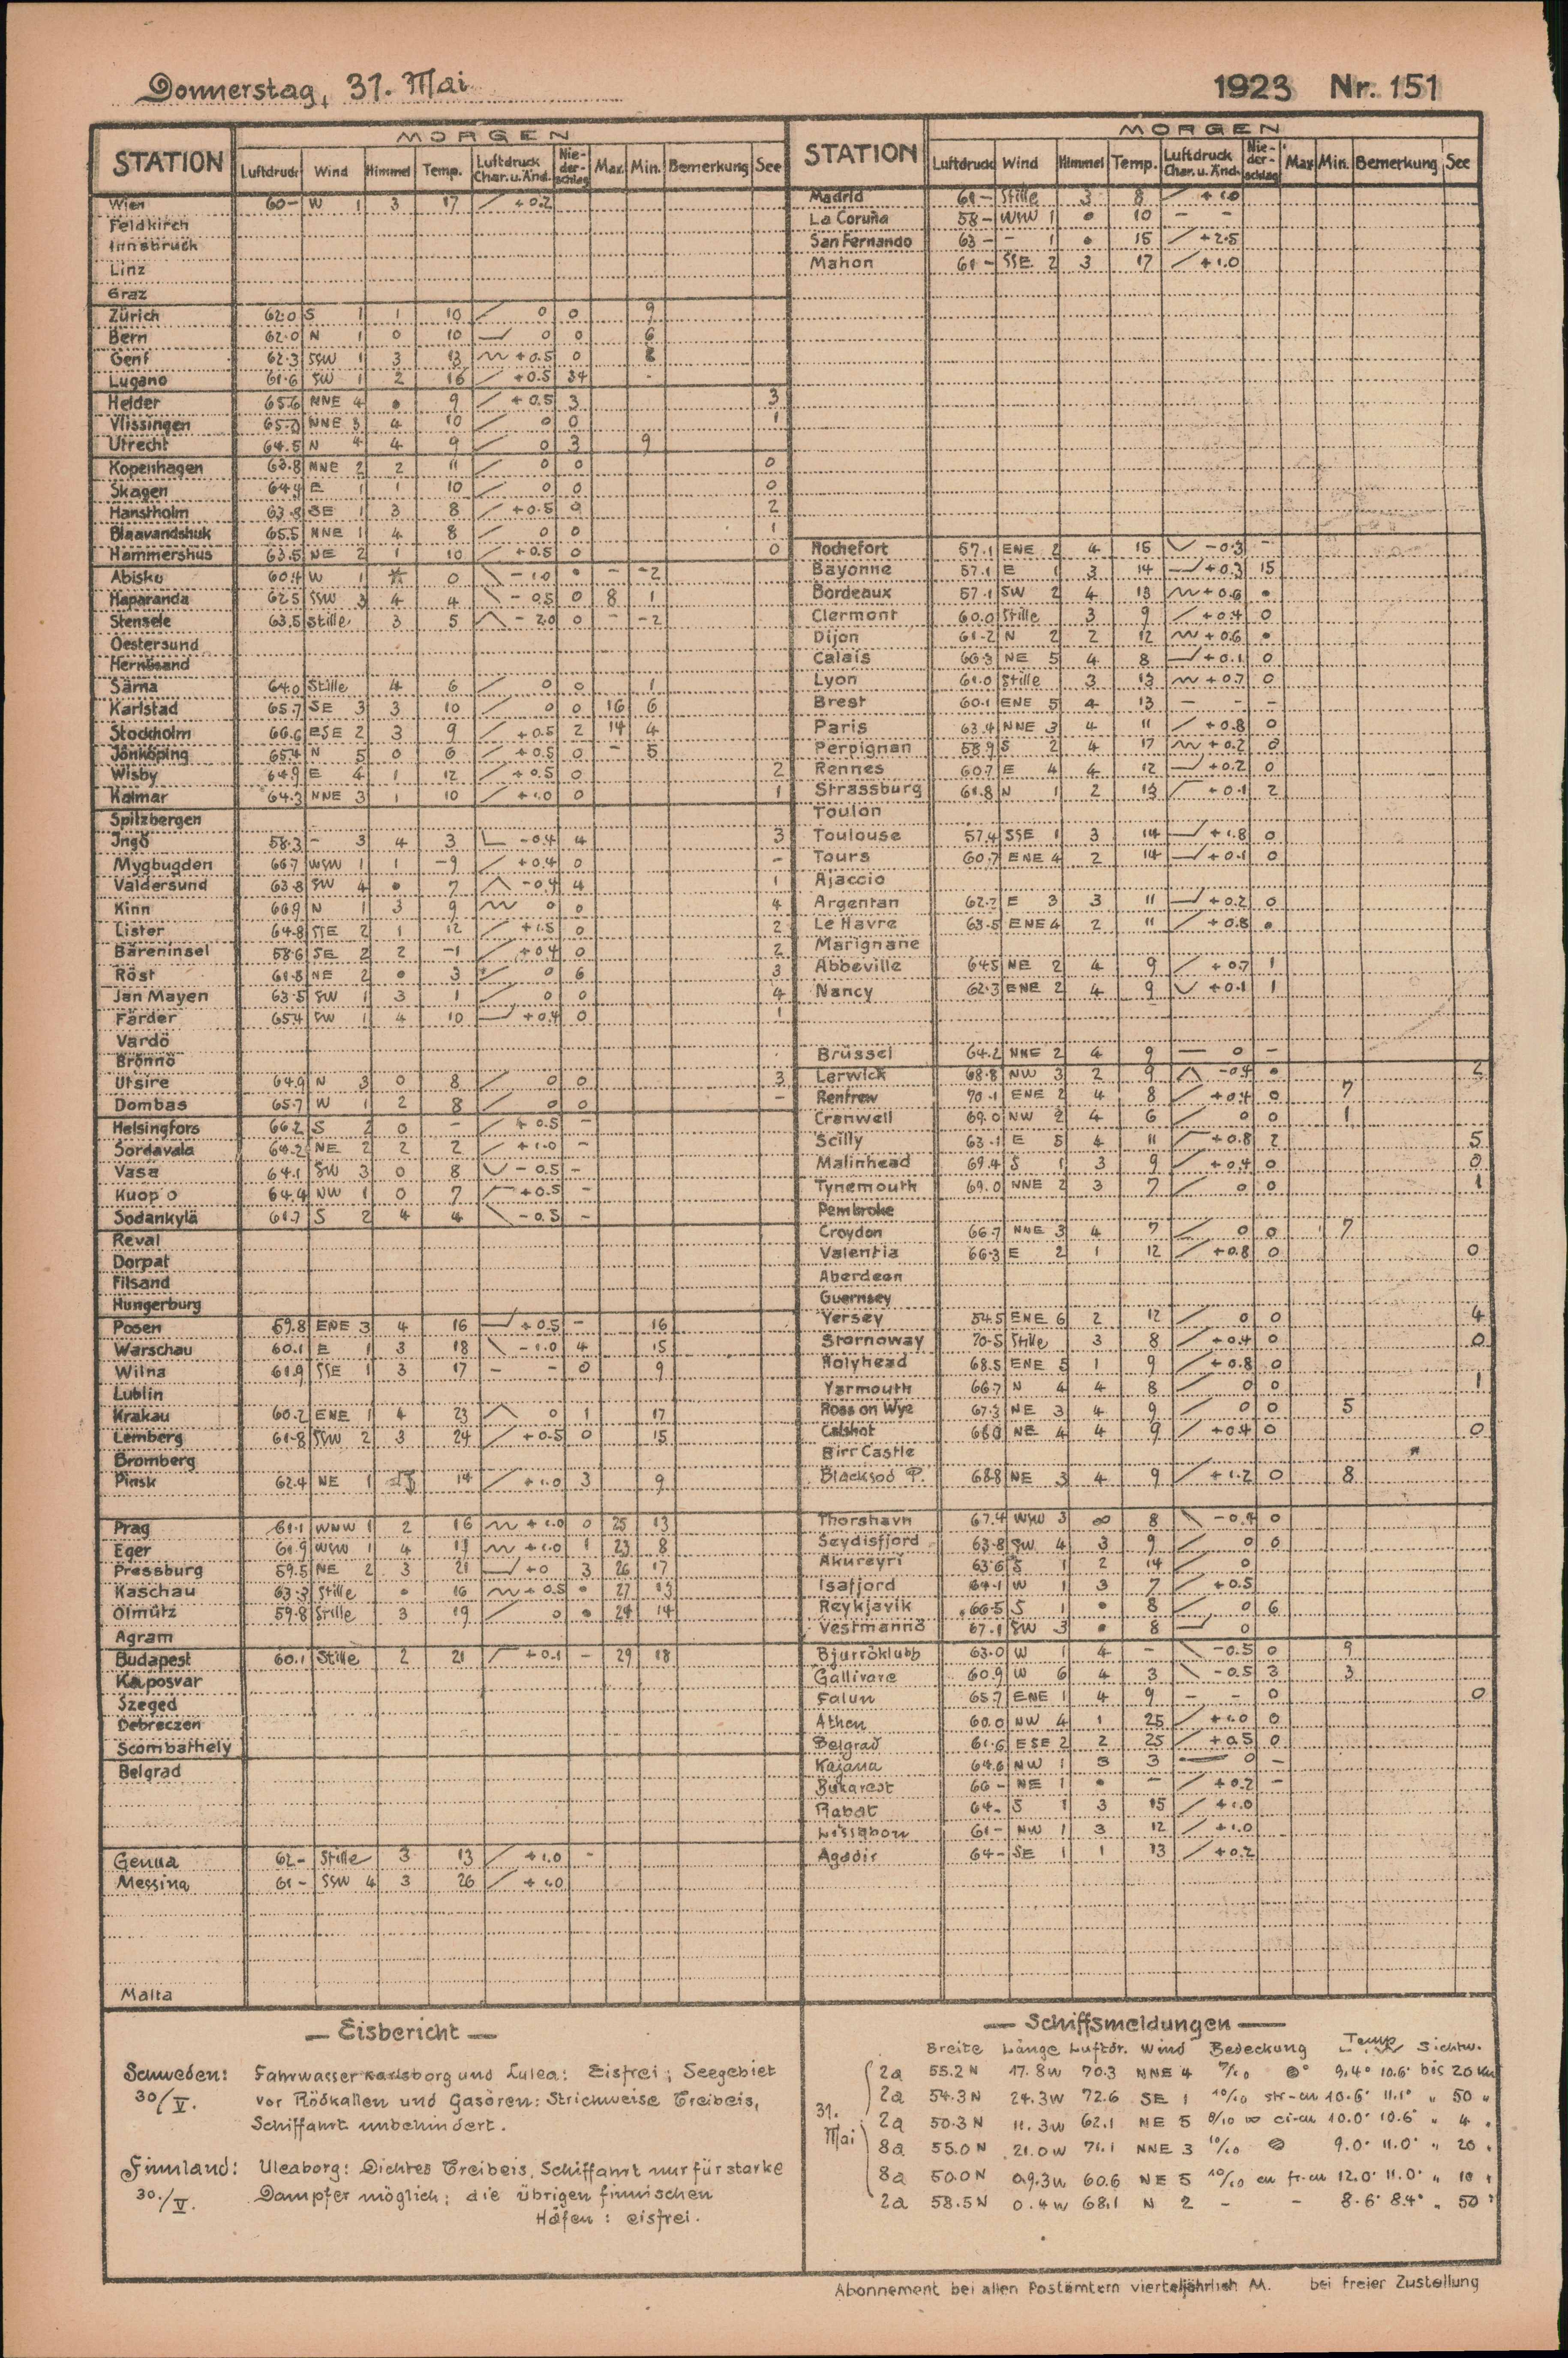 Donnerstag, 31. Mai
1923 Nr. 151
MORGEN
STATION Luftdruck Wind Himmel Temp. Luftdruck Char. u. Änd. Nie-der-schlag Max. Min. Bemerkung See
Wien 60– W 1 3 17 / +0.2
Feldkirch
Innsbruck
Linz
Graz
Zürich 62.0 S 1 1 10 / 0 0 9
Bern 62.0 N 1 0 10 0 0 6
Genf 62.3 SSW 1 3 13 +0.5 0
Lugano 61.6 SW 1 2 16 / +0.5 34 -
Helder 65.6 NNE 4 • 9 / +0.5 3 3
Vlissingen NNE 3 4 10 / 0 0 1
Utrecht 64.5 N 4 4 9 / 0 3 9
Kopenhagen 63.8 NNE 2 2 11 / 0 0 0
Skagen 64.4 E 1 1 10 / 0 0 0
Hanstholm 63.8 SE 1 3 8 / +0.5 0 2
Blaavandshuk 65.5 NNE 1 4 8 / 0 0 1
Hammershus 63.5 NE 2 1 10 / +0.5 0 0
Abisko 60.4 W 1 0 \ –1.0 • – –2
Haparanda 62.5 SSW 3 4 4 \ –0.5 0 8 1
Stensele 63.5 Stille 3 5 –2.0 0 – –2
Oestersund
Hernösand
Särna 64.0 Stille 4 6 / 0 0 1
Karlstad 65.7 SE 3 3 10 / 0 0 16 6
Stockholm 66.6 ESE 2 3 9 / +0.5 2 14 4
Jönköping 65.4 N 5 0 6 / +0.5 0 – 5
Wisby 64.9 E 4 1 12 / +0.5 0 2
Kalmar 64.3 NNE 3 1 10 / +1.0 0 1
Spitzbergen
Ingö 58.3 – 3 4 3 –0.4 4 3
Mygbugden 66.7 WSW 1 1 –9 / +0.4 0 –
Valdersund 63.8 SW 4 • 7 –0.4 4 1
Kinn 66.9 N 1 3 9 0 0 4
Lister 64.8 SSE 2 1 12 / +1.5 0 2
Bäreninsel 58.6 SE 2 2 –1 / +0.4 0 2
Röst 61.8 NE 2 • 3 0 6 3
Jan Mayen 63.5 SW 1 3 1 / 0 0 4
Färder 65.4 SW 1 4 10 +0.4 0 1
Vardö
Brönnö
Utsire 64.9 N 3 0 8 / 0 0 3
Dombas 65.7 W 1 2 8 / 0 0 –
Helsingfors 66.2 S 2 0 – / +0.5 –
Sordavala 64.2 NE 2 2 2 / +1.0 –
Vasa 64.1 SW 3 0 8 –0.5 –
Kuopio 64.4 NW 1 0 7 +0.5 –
Sodankylä 61.7 S 2 4 4 \ –0.5 –
Reval
Dorpat
Filsand
Hungerburg
Posen 59.8 ENE 3 4 16 +0.5 – 16
Warschau 60.1 E 1 3 18 \ –1.0 4 15
Wilna 61.9 SSE 1 3 17 – – 0 9
Lublin
Krakau 60.2 ENE 1 4 23 0 1 17
Lemberg 61.8 SSW 2 3 24 / +0.5 0 15
Bromberg
Pinsk 62.4 NE 1 14 / +1.0 3 9
Prag 61.1 WNW 1 2 16 +1.0 0 25 13
Eger 61.9 WSW 1 4 +1.0 1 23 8
Pressburg 59.5 NE 2 3 21 +0 3 26 17
Kaschau 63.3 Stille • 16 +0.5 • 27 13
Olmütz 59.8 Stille 3 19 / 0 • 24 14
Agram
Budapest 60.1 Stille 2 21 +0.1 – 29 18
Kaposvar
Szeged
Debreczen
Scombathely
Belgrad
Genua 62– Stille 3 13 / +1.0 –
Messina 61– SSW 4 3 26 / +1.0
Malta
MORGEN
STATION Luftdruck Wind Himmel Temp. Luftdruck Char. u. Änd. Nie-der-schlag Max Min. Bemerkung See
Madrid 61– Stille 3 8 / +1.0
La Coruña 58– WSW 1 • 10 – –
San Fernando 63– – 1 • 15 / +2.5
Mahon 61– SSE 2 3 17 / +1.0
Rochefort 57.1 ENE 2 4 15 –0.3 –
Bayonne 57.1 E 1 3 14 +0.3 15
Bordeaux 57.1 SW 2 4 13 +0.6 •
Clermont 60.0 Stille 3 9 / +0.4 0
Dijon 61.2 N 2 2 12 +0.6 •
Calais 66.3 NE 5 4 8 +0.1 0
Lyon 61.0 Stille 3 13 +0.7 0
Brest 60.1 ENE 5 4 13 – – –
Paris 63.4 NNE 3 4 11 / +0.8 0
Perpignan 58.9 S 2 4 17 +0.2 0
Rennes 60.7 E 4 4 12 +0.2 0
Strassburg 61.8 N 1 2 13 +0.1 2
Toulon
Toulouse 57.4 SSE 1 3 14 +1.8 0
Tours 60.7 ENE 4 2 14 +0.1 0
Ajaccio
Argentan 62.2 E 3 3 11 +0.2 0
Le Havre 63.5 ENE 4 2 11 / +0.8 •
Marignane
Abbeville 64.5 NE 2 4 9 / +0.7 1
Nancy 62.3 ENE 2 4 9 +0.1 1
Brüssel 64.2 NNE 2 4 9 — 0 –
Lerwick 68.8 NW 3 2 9 –0.4 • 2
Renfrew 70.1 ENE 2 4 8 / +0.4 0 7
Cranwell 69.0 NW 2 4 6 / 0 0 1
Scilly 63.1 E 5 4 11 +0.8 2 5
Malinhead 69.4 S 1 3 9 / +0.4 0 0
Tynemouth 69.0 NNE 2 3 7 / 0 0 1
Pembroke
Croydon 66.7 NNE 3 4 7 / 0 0 7
Valentia 66.3 E 2 1 12 / +0.8 0 0
Aberdeen
Guernsey
Yersey 54.5 ENE 6 2 12 / 0 0 4
Stornoway 70.5 Stille 3 8 / +0.4 0 0
Holyhead 68.5 ENE 5 1 9 / +0.8 0
Yarmouth 66.7 N 4 4 8 / 0 0 1
Ross on Wye 67.3 NE 3 4 9 / 0 0 5
Calshot NE 4 4 9 / +0.4 0 0
Birr Castle
Blacksod P. 68.8 NE 3 4 9 / +1.2 0 8
Thorshavn 67.4 WSW 3 ∞ 8 \ –0.4 0
Seydisfjord 63.8 SW 4 3 9 / 0 0
Akureyri 63.6 S 1 2 14 / 0
Isafjord 64.1 W 1 3 7 / +0.5
Reykjavik 66.5 S 1 • 8 / 0 6
Vestmannö 67.1 SW 3 • 8 0
Bjurröklubb 63.0 W 1 4 – \ –0.5 0 9
Gällivare 60.9 W 6 4 3 \ –0.5 3 3
Falun 65.7 ENE 1 4 9 – – 0 0
Athen 60.0 NW 4 1 25 / +1.0 0
Belgrad 61.6 ESE 2 2 25 / +0.5 0
Kajana 64.6 NW 1 3 3 — 0 –
Bukarest 66– NE 1 • – / +0.2 –
Rabat 64– S 1 3 15 / +1.0
Lissabon 61– NW 1 3 12 / +1.0
Agadir 64– SE 1 1 13 / +0.2
— Eisbericht —
Schweden: Fahrwasser Karlsborg und Lulea: Eisfrei; Seegebiet
30/V. vor Rödkallen und Gasören: Strichweise Treibeis,
Schiffahrt unbehindert.
Finnland: Uleaborg: Dichtes Treibeis, Schiffahrt nur für starke
30./V. Dampfer möglich; die übrigen finnischen
Häfen: eisfrei.
— Schiffsmeldungen —
Breite Länge Luftdr. Wind Bedeckung Temp. Sichtw.
31. Mai
2a 55.2 N 17.8 W 70.3 NNE 4 7/10 9.4° 10.6° bis 20 km
2a 54.3 N 24.3 W 72.6 SE 1 10/10 str-cu 10.6° 11.1° „ 50 „
2a 50.3 N 11.3 W 62.1 NE 5 8/10 ∞ ci-cu 10.0° 10.6° „ 4 „
8a 55.0 N 21.0 W 71.1 NNE 3 10/10 9.0° 11.0° „ 20 „
8a 50.0 N 09.3 W 60.6 NE 5 10/10 cu fr-cu 12.0° 11.0° „ 10 „
2a 58.5 N 0.4 W 68.1 N 2 – – 8.6° 8.4° „ 50 „
Abonnement bei allen Postämtern vierteljährlich M. bei freier Zustellung